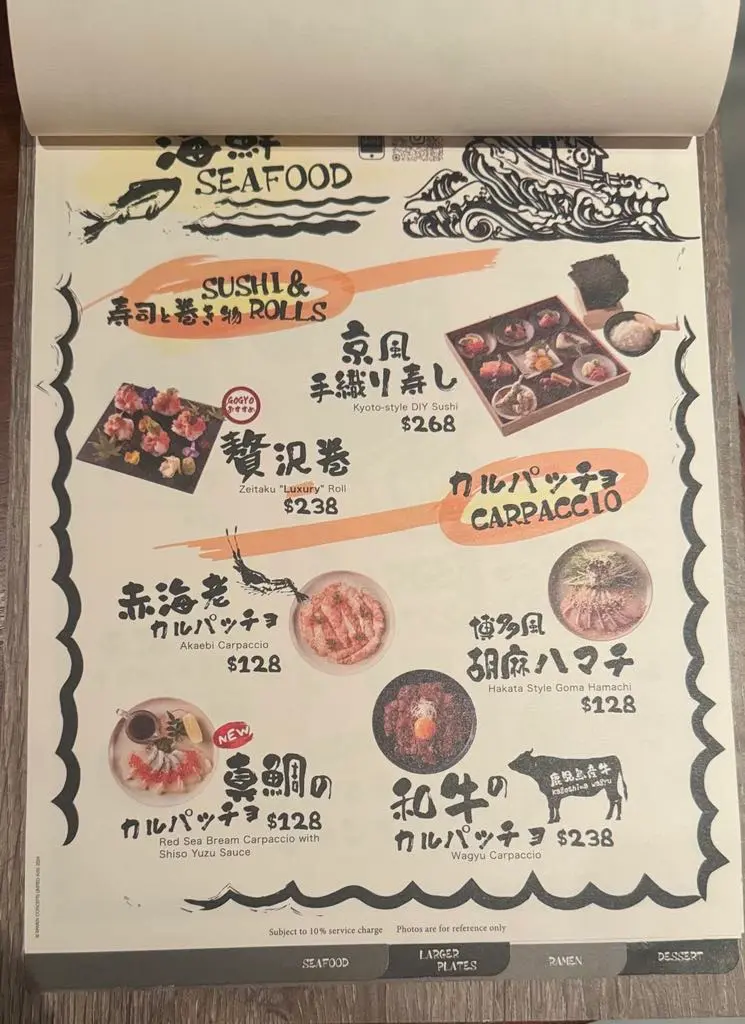 海鮮
SEAFOOD
SUSHI &
寿司と巻き物 ROLLS
京風
手織り寿し
Kyoto-style DIY Sushi
$268
GOGYO
おすすめ
贅沢巻
Zeitaku "Luxury" Roll
$238
カルパッチョ
CARPACCIO
赤海老
カルパッチョ
Akaebi Carpaccio
$128
博多風
胡麻ハマチ
Hakata Style Goma Hamachi
$128
NEW
真鯛の
カルパッチョ $128
Red Sea Bream Carpaccio with
Shiso Yuzu Sauce
鹿児島産牛
kagoshima wagyu
和牛の
カルパッチョ $238
Wagyu Carpaccio
Subject to 10% service charge Photos are for reference only
SEAFOOD
LARGER
PLATES
RAMEN
DESSERT